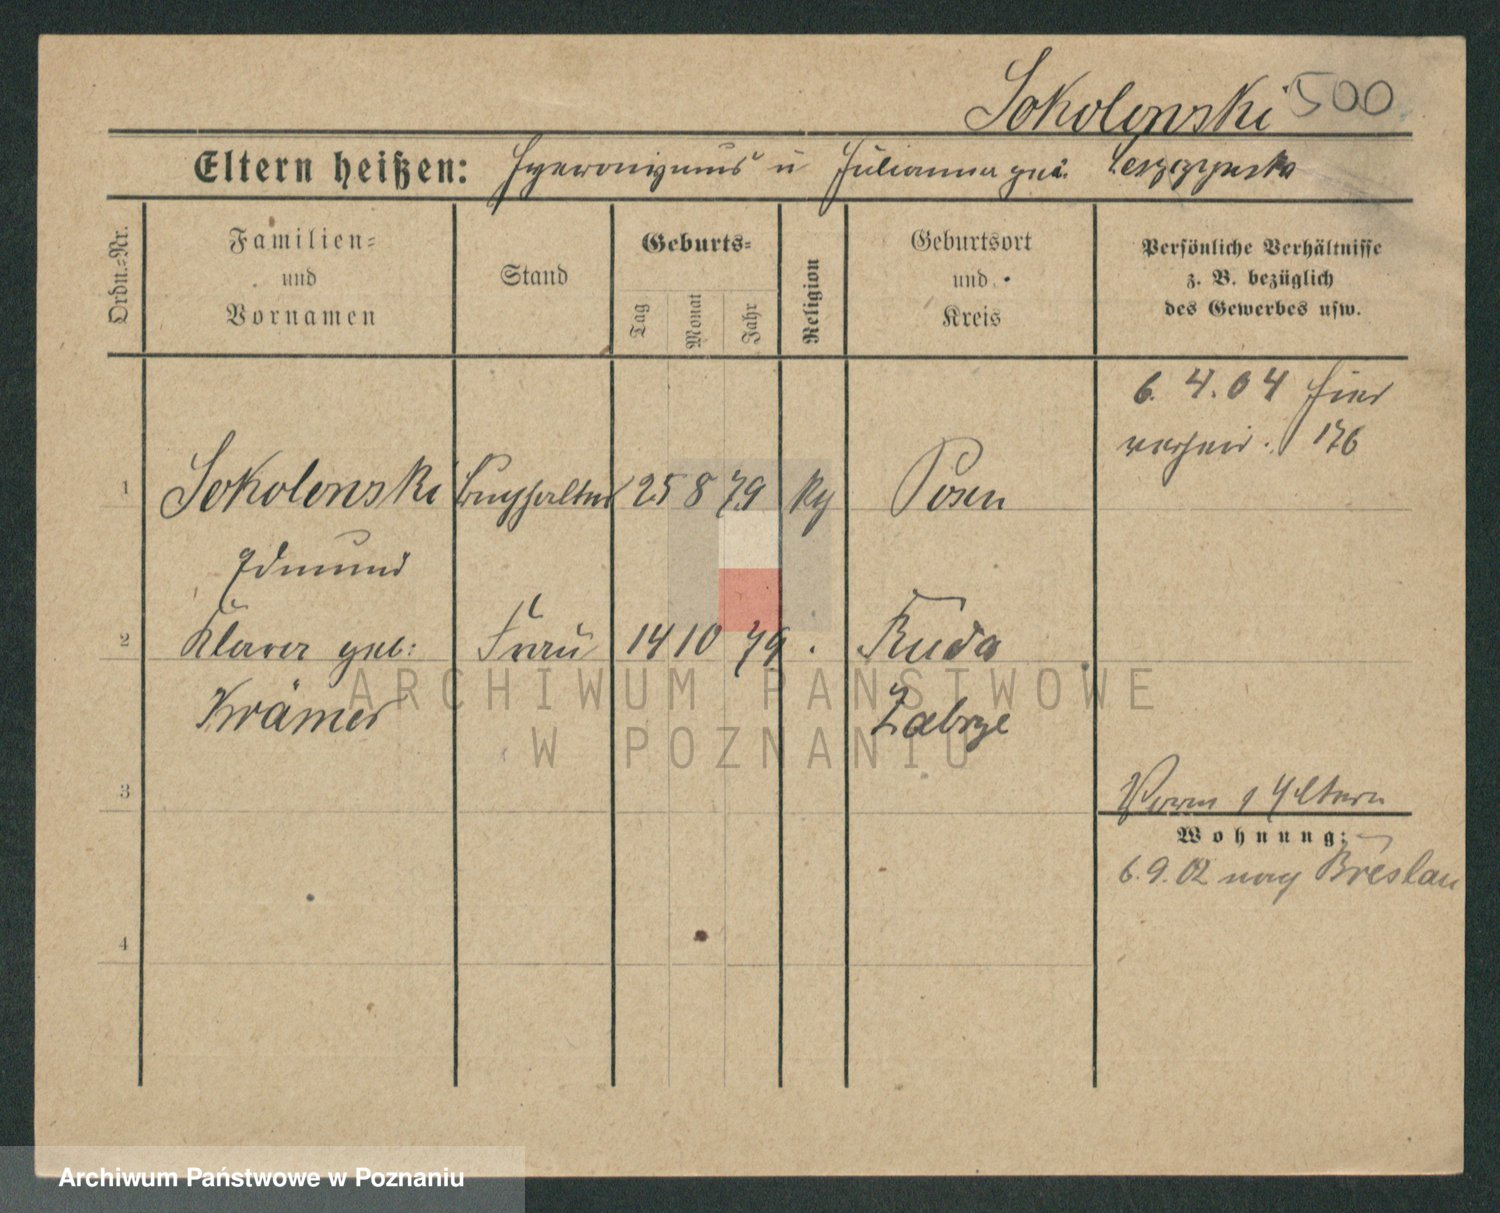 Sokolowski 500
Eltern heißen: Hyeronimus u Julianna geb.
Ordn.-Nr.
Familien-
und
Vornamen
Stand
Geburts-
Tag
Monat
Jahr
Religion
Geburtsort
und
Kreis
Persönliche Verhältnisse
z. B. bezüglich
des Gewerbes usw.
6. 4. 04 hier
verheir. 176
1 Sokolowski Buchhalter 25 8 79 kg Posen
Edmund
2 Klara geb: Frau 14 10 79 . Ruda
Krämer Zabrze
3
Worm 1 Eltern
Wohnung:
6. 9. 02 nach Breslau
4
ARCHIWUM PAŃSTWOWE
W POZNANIU
Archiwum Państwowe w Poznaniu